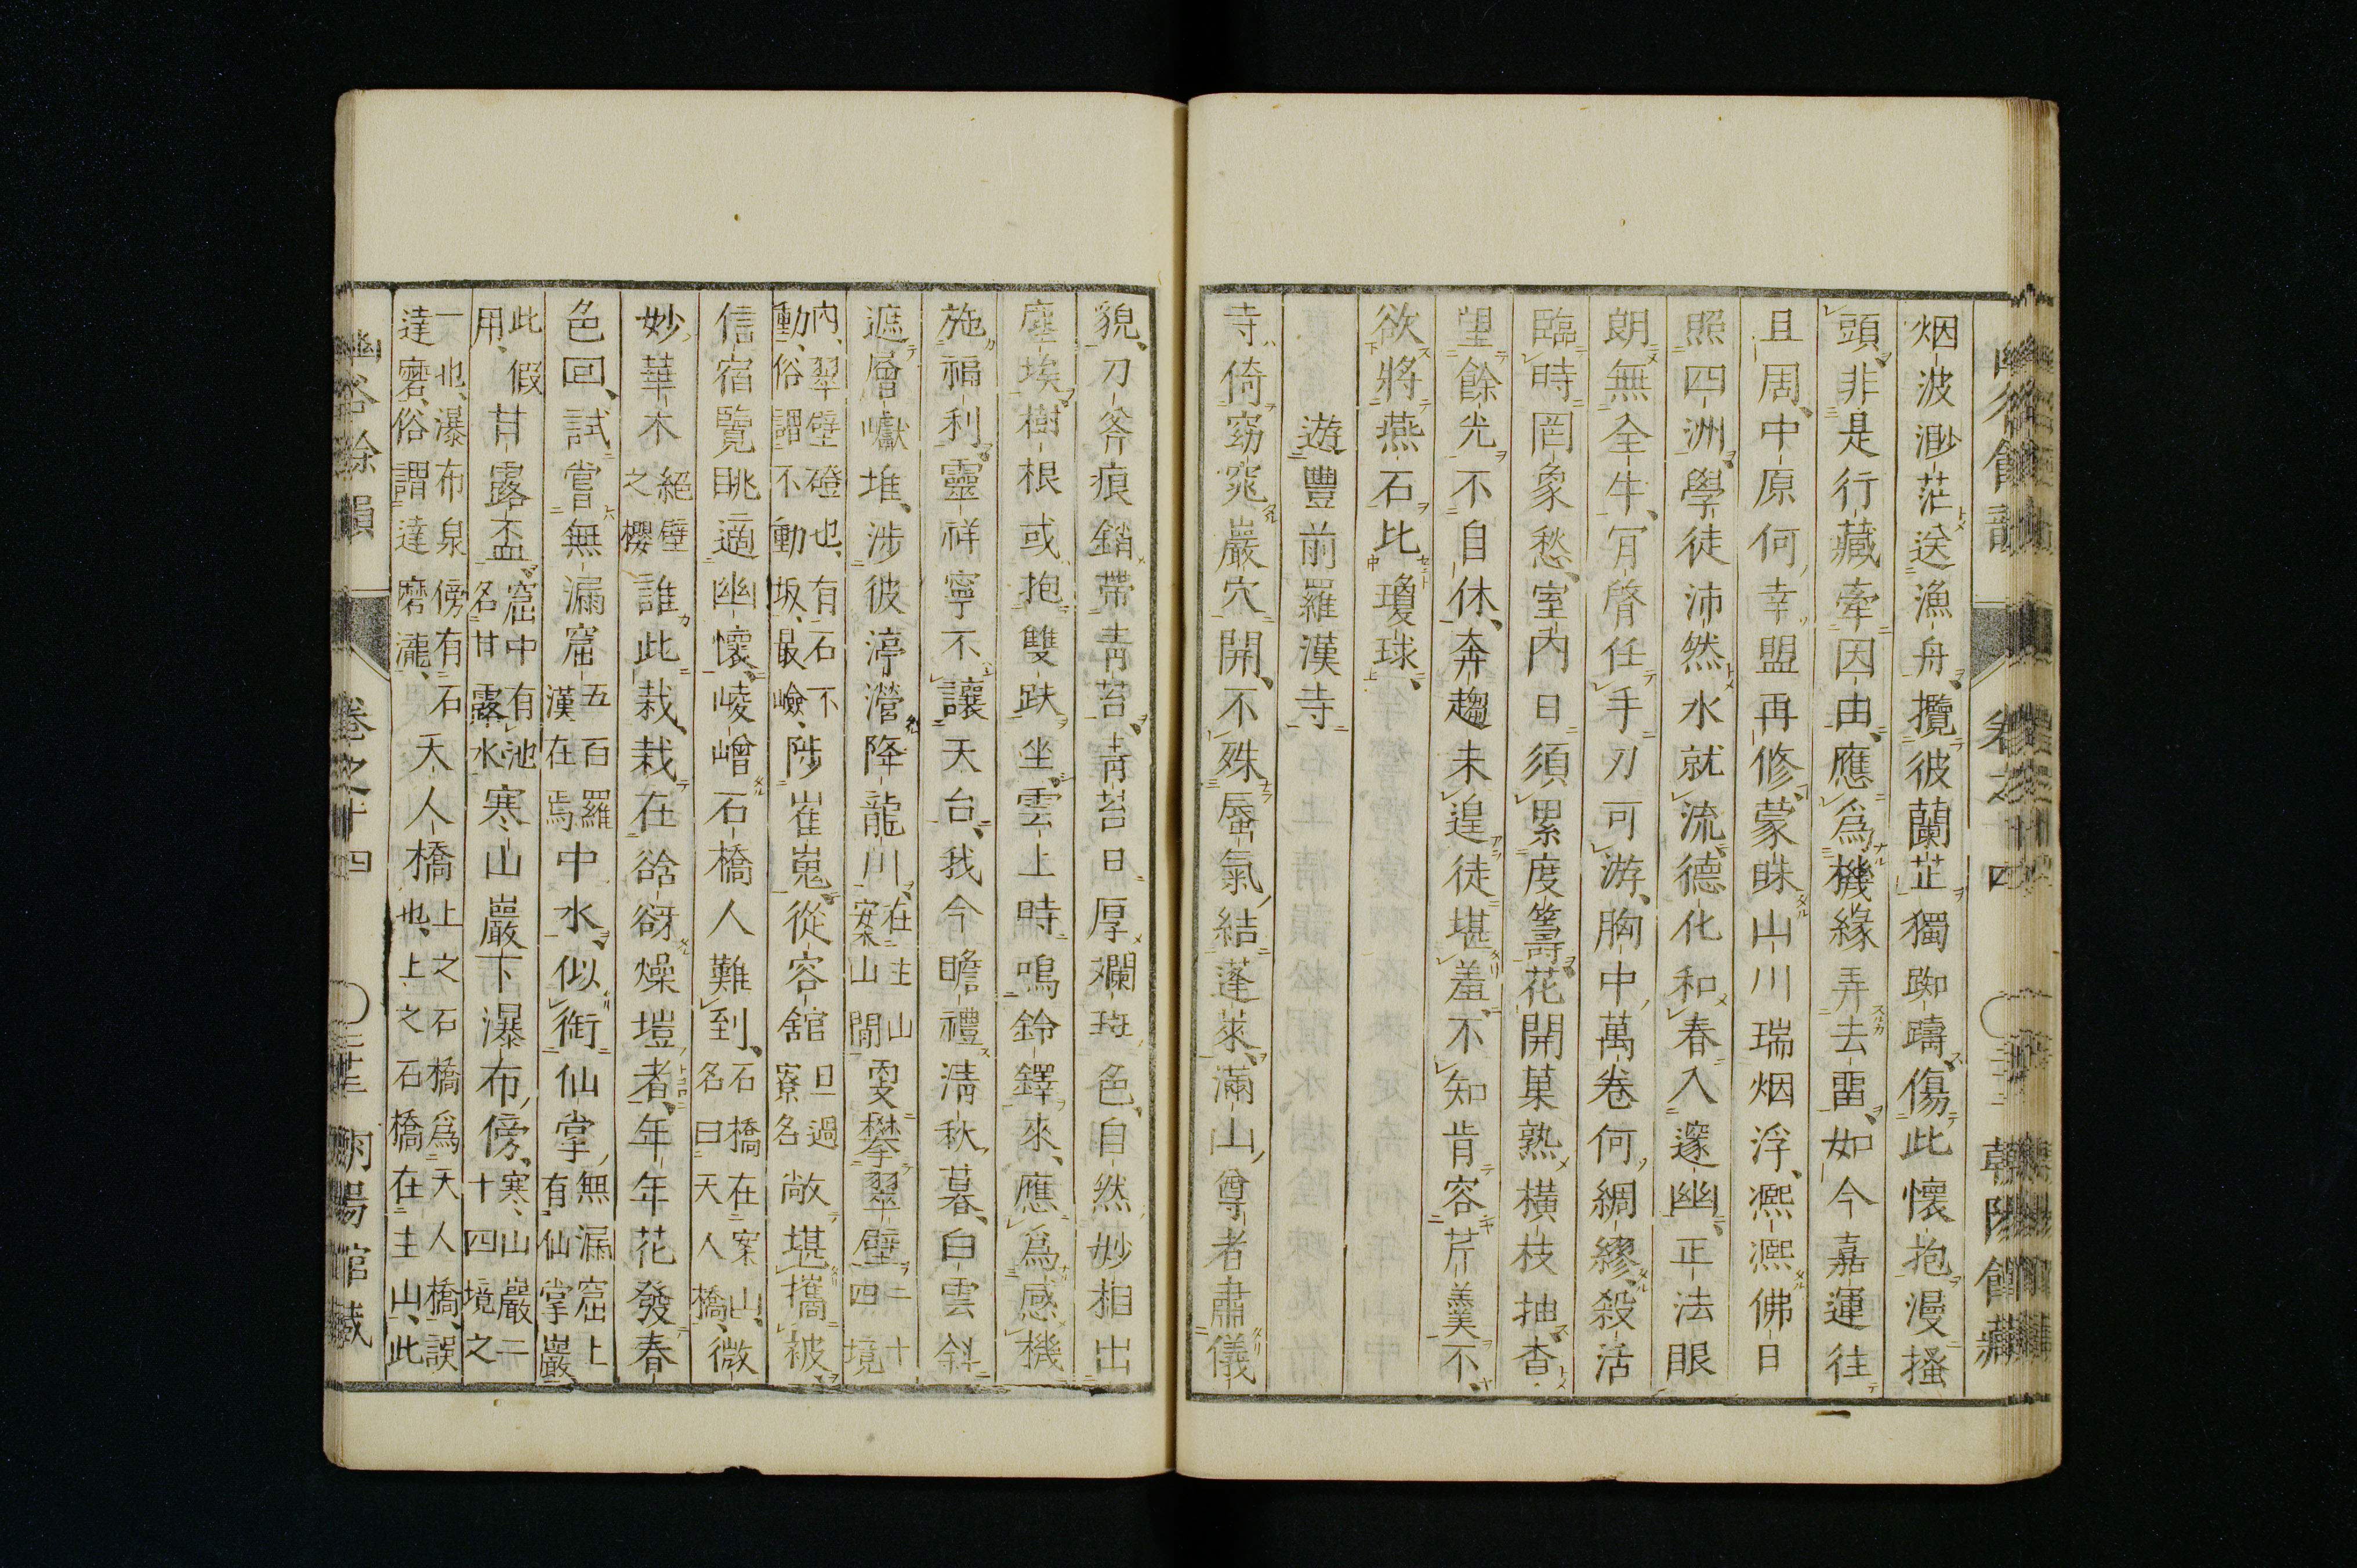 烟波渺茫送漁舟攬彼蘭芷獨踟躊傷此懷抱漫搔
頭非是行藏牽因由應爲機緣弄去畱如今嘉運往
且周中原何幸盟再修蒙昧山川瑞烟浮凞凞佛日
照四洲學徒沛然水就流德化和春入邃幽正法眼
朗無全牛肎綮任手刃可游胸中萬卷何綢繆殺活
臨時罔象愁室內日須累度籌花開菓熟橫枝抽杳
望餘光不自休奔趨未遑徒堪羞不知肯容芹羹不
欲將燕石比瓊球
遊豐前羅漢寺
寺倚窈窕巖穴開不殊蜃氣結蓬萊滿山尊者肅儀
貌刀斧痕銷帶靑苔靑苔日厚斕斑色自然妙相出
塵埃樹根或抱雙趺坐雲上時鳴鈴鐸來應爲感機
施福利靈祥寧不讓天台我今瞻禮淸秋暮白雲斜
遮層巘堆涉彼渟瀯降龍川在主山案山間雯攀翠壁二十四境
內翠壁磴也有石不動俗謂不動坂最嶮陟崔嵬從容舘旦過寮名敞堪攜被
信宿覽眺適幽懷崚嶒石橋人難到石橋在案山名曰天人橋微
妙華木絕壁之櫻誰此栽栽在谽谺燥塏者年年花發春
色回試嘗無漏窟五百羅漢在焉中水似衝仙掌無漏窟上有仙掌巖
此假用甘露盃窟中有池名甘露水寒山巖下瀑布傍寒山巖二十四境之
一也瀑布泉傍有石達磨俗謂達磨瀧天人橋上之石橋爲天人橋誤也上之石橋在主山此
幽谷餘韻 卷之十四 朝陽館藏